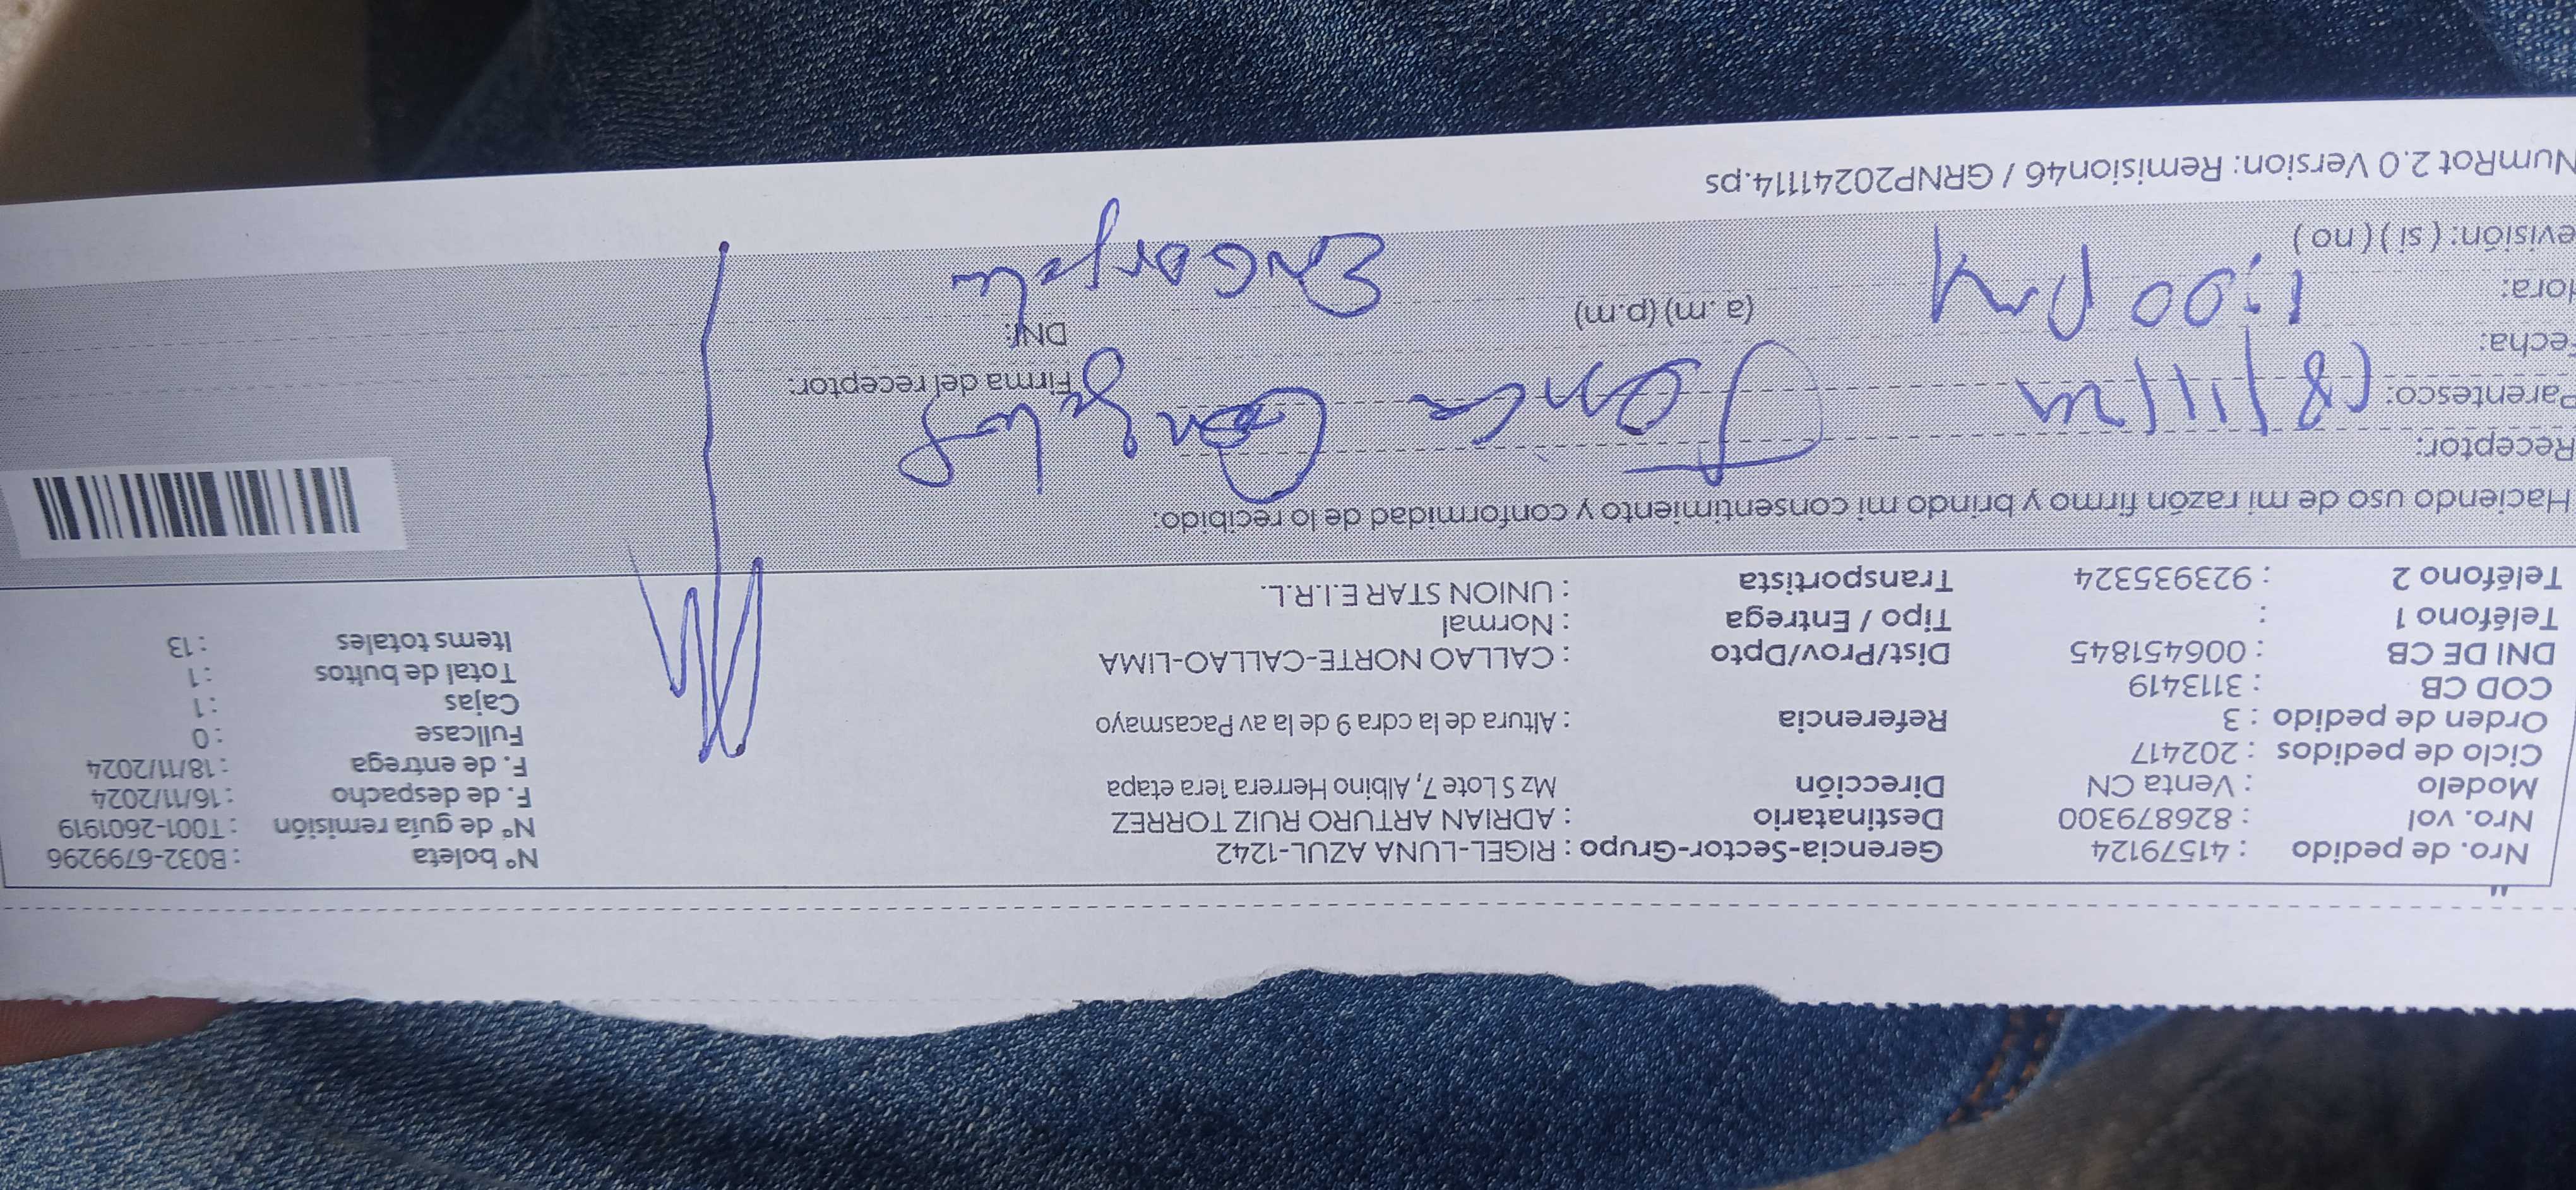 Nro. de pedido : 41579124 Gerencia-Sector-Grupo : RIGEL-LUNA AZUL-1242 N° boleta : B032-6799296
Nro. vol : 826879300 Destinatario : ADRIAN ARTURO RUIZ TORREZ N° de guía remisión : T001-2601919
Modelo : Venta CN Dirección Mz S Lote 7, Albino Herrera 1era etapa F. de despacho : 16/11/2024
Ciclo de pedidos : 202417 F. de entrega : 18/11/2024
Orden de pedido : 3 Referencia : Altura de la cdra 9 de la av Pacasmayo Fullcase : 0
COD CB : 3113419 Cajas : 1
DNI DE CB : 006451845 Dist/Prov/Dpto : CALLAO NORTE-CALLAO-LIMA Total de bultos : 1
Teléfono 1 : Tipo / Entrega : Normal Items totales : 13
Teléfono 2 : 923935324 Transportista : UNION STAR E.I.R.L.
Haciendo uso de mi razón firmo y brindo mi consentimiento y conformidad de lo recibido:
Receptor:
Parentesco: 18/11/24 Firma del receptor:
Fecha: DNI:
Hora: 1:00 PM (a. m) (p.m)
evisión: ( si ) ( no )
NumRot 2.0 Version: Remision46 / GRNP20241114.ps